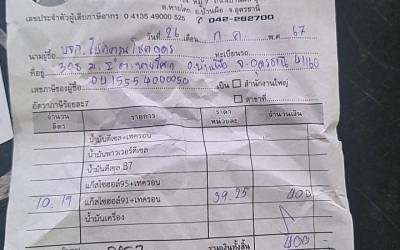 ต.หายโศก อ.บ้านผือ จ.อุดรธานี
เลขประจำตัวผู้เสียภาษีอากร 0 4135 49000 525 042-282700
วันที่ 26 เดือน ก ค พ.ศ 67
นามผู้ซื้อ บจก. ทะเบียนรถ
ที่อยู่ 308 ม. ต. หายโศก อ.บ้านผือ จ.อุดรธานี 41160
เลขภาษีของผู้ซื้อ 0415554000050 เป็น สำนักงานใหญ่
อัตราภาษีร้อยละ7 สาขาที่
จำนวน ลิตร รายการ ราคา หน่วยละ จำนวนเงิน
น้ำมันดีเซล+เทครอน
น้ำมันพาวเวอร์ดีเซล
น้ำมันดีเซล B7
แก๊สโซฮอล์95+เทครอน
10.19 แก๊สโซฮอล์91+เทครอน 39.25 400
น้ำมันเครื่อง
รวมเงินทั้งสิ้น 400